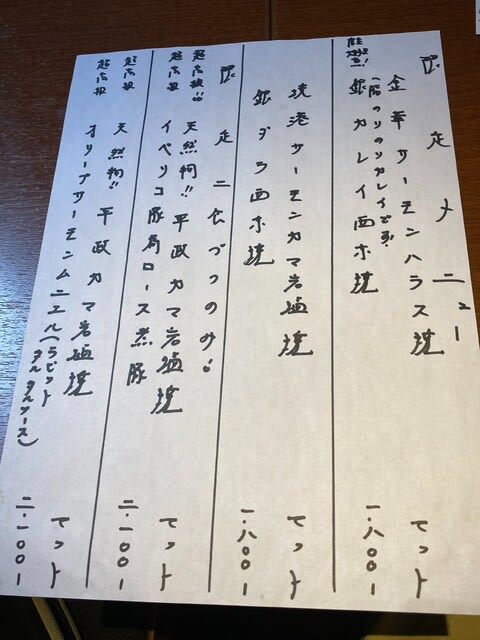 限定メニュー
金華サーモンハラス焼 セット
(脂のりのりカレイです!)
銀カレイ西京焼 一.八〇〇-
境港サーモンカマ岩塩焼 セット
銀ダラ西京焼 一.八〇〇-
限定二食づつのみ!!
天然物!! 平政カマ岩塩焼 セット
イベリコ豚肩ロース煮豚 二.一〇〇-
天然物!! 平政カマ岩塩焼 セット
オリーブサーモンムニエル(ラビット
タルタルソース) 二.一〇〇-